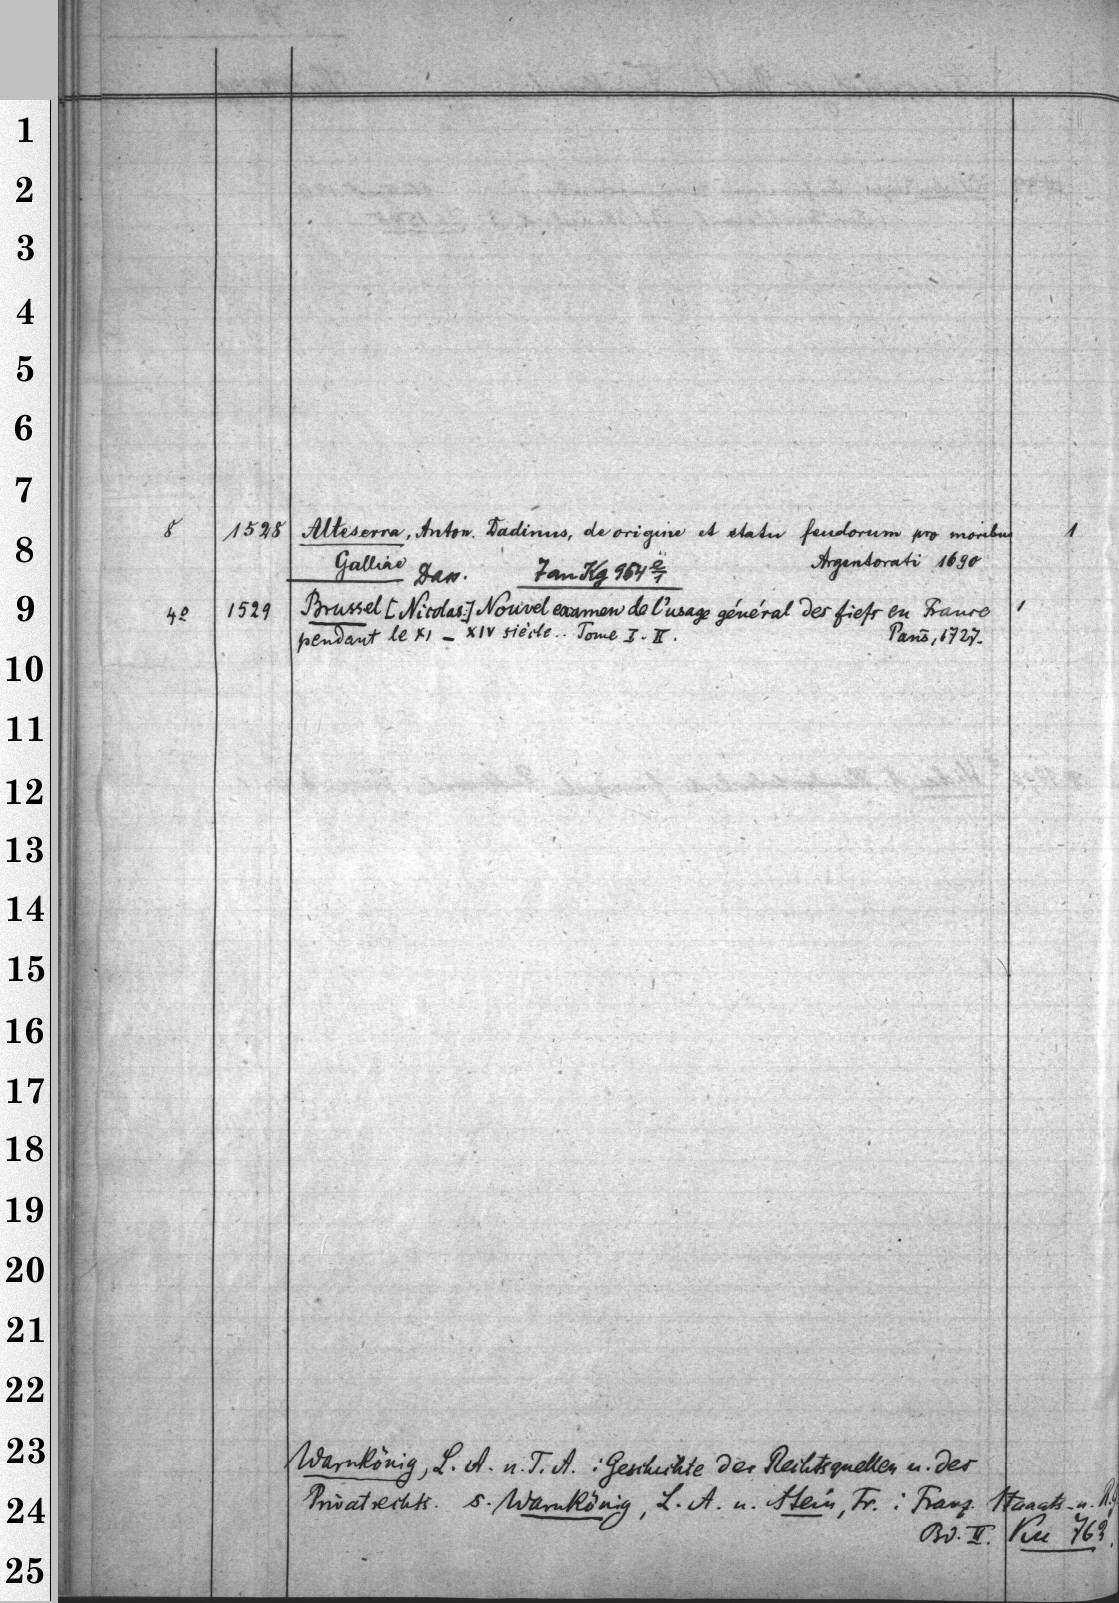 1
2
3
4
5
6
7
8 1528 Alteserra, Anton. Dadinus, de origine et statu feudorum pro moribus 1
8
Galliae Dass. Jan Kg 964 Argentorati 1690
9
4º 1529 Brussel [Nicolas:] Nouvel examen de l'usage général des fiefs en France 1
pendant le XI – XIV siècle.. Tome I. II. Paris, 1727.
10
11
12
13
14
15
16
17
18
19
20
21
22
23
Warnkönig, L. A. u. T. A. : Geschichte der Rechtsquellen u. des
24
Privatrechts. s. Warnkönig, L. A. u. Stein, Fr. : Franz. Staats- u. R.g
Bd. II.
25